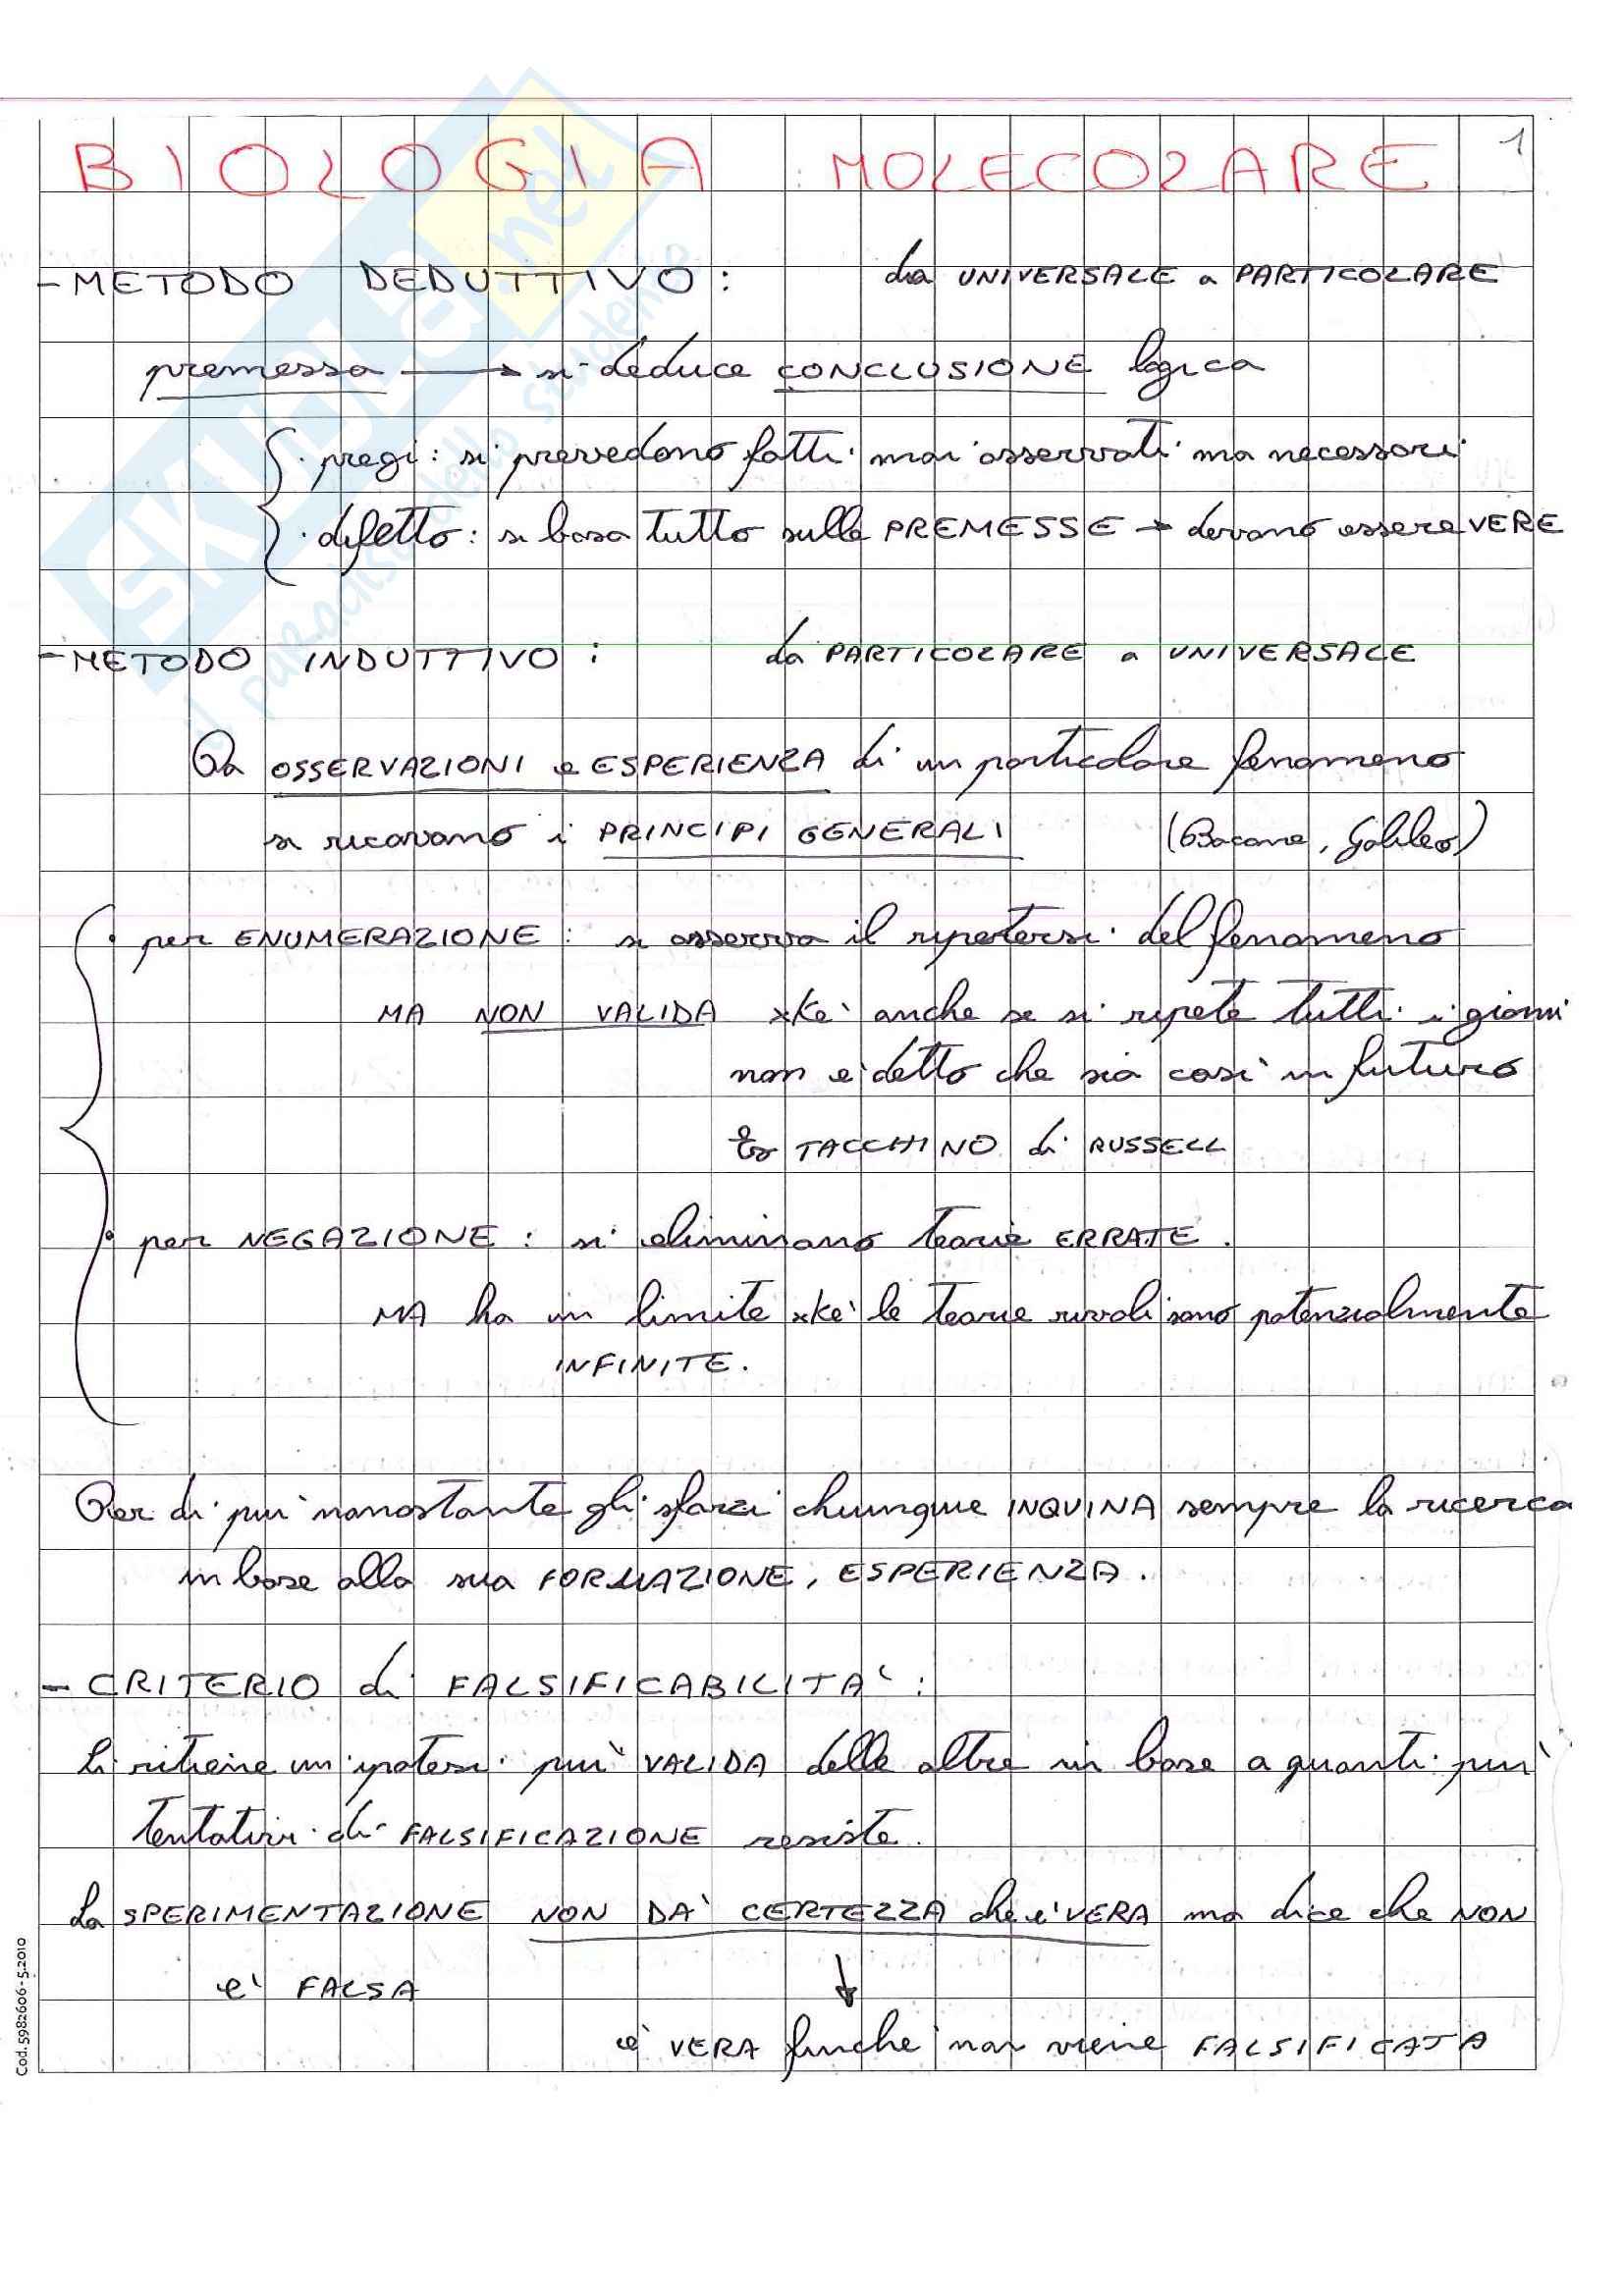 BIOLOGIA MOLECOLARE 1
- METODO DEDUTTIVO : da UNIVERSALE a PARTICOLARE
premessa → si deduce CONCLUSIONE logica
· pregi : si prevedono fatti mai osservati ma necessari
· difetto : si basa tutto sulle PREMESSE → devono essere VERE
- METODO INDUTTIVO : da PARTICOLARE a UNIVERSALE
Da OSSERVAZIONI e ESPERIENZA di un particolare fenomeno
si ricavano i PRINCIPI GENERALI (Bacone, Galileo)
· per ENUMERAZIONE : si osserva il ripetersi del fenomeno
MA NON VALIDA xkè anche se si ripete tutti i giorni
non è detto che sia così in futuro
Es TACCHINO di RUSSELL
· per NEGAZIONE : si eliminano teorie ERRATE .
MA ha un limite xkè le teorie rivali sono potenzialmente
INFINITE .
Per di più nonostante gli sforzi chiunque INQUINA sempre la ricerca
in base alla sua FORMAZIONE, ESPERIENZA .
- CRITERIO di FALSIFICABILITA' :
Si ritiene un ipotesi più VALIDA delle altre in base a quanti più
tentativi di FALSIFICAZIONE resiste .
La SPERIMENTAZIONE NON DA' CERTEZZA che è VERA ma dice che NON
è FALSA ↓
è VERA finchè non viene FALSIFICATA
Cod. 5982606 - 5.2010
SKUOLA.net
il paradiso dello studente